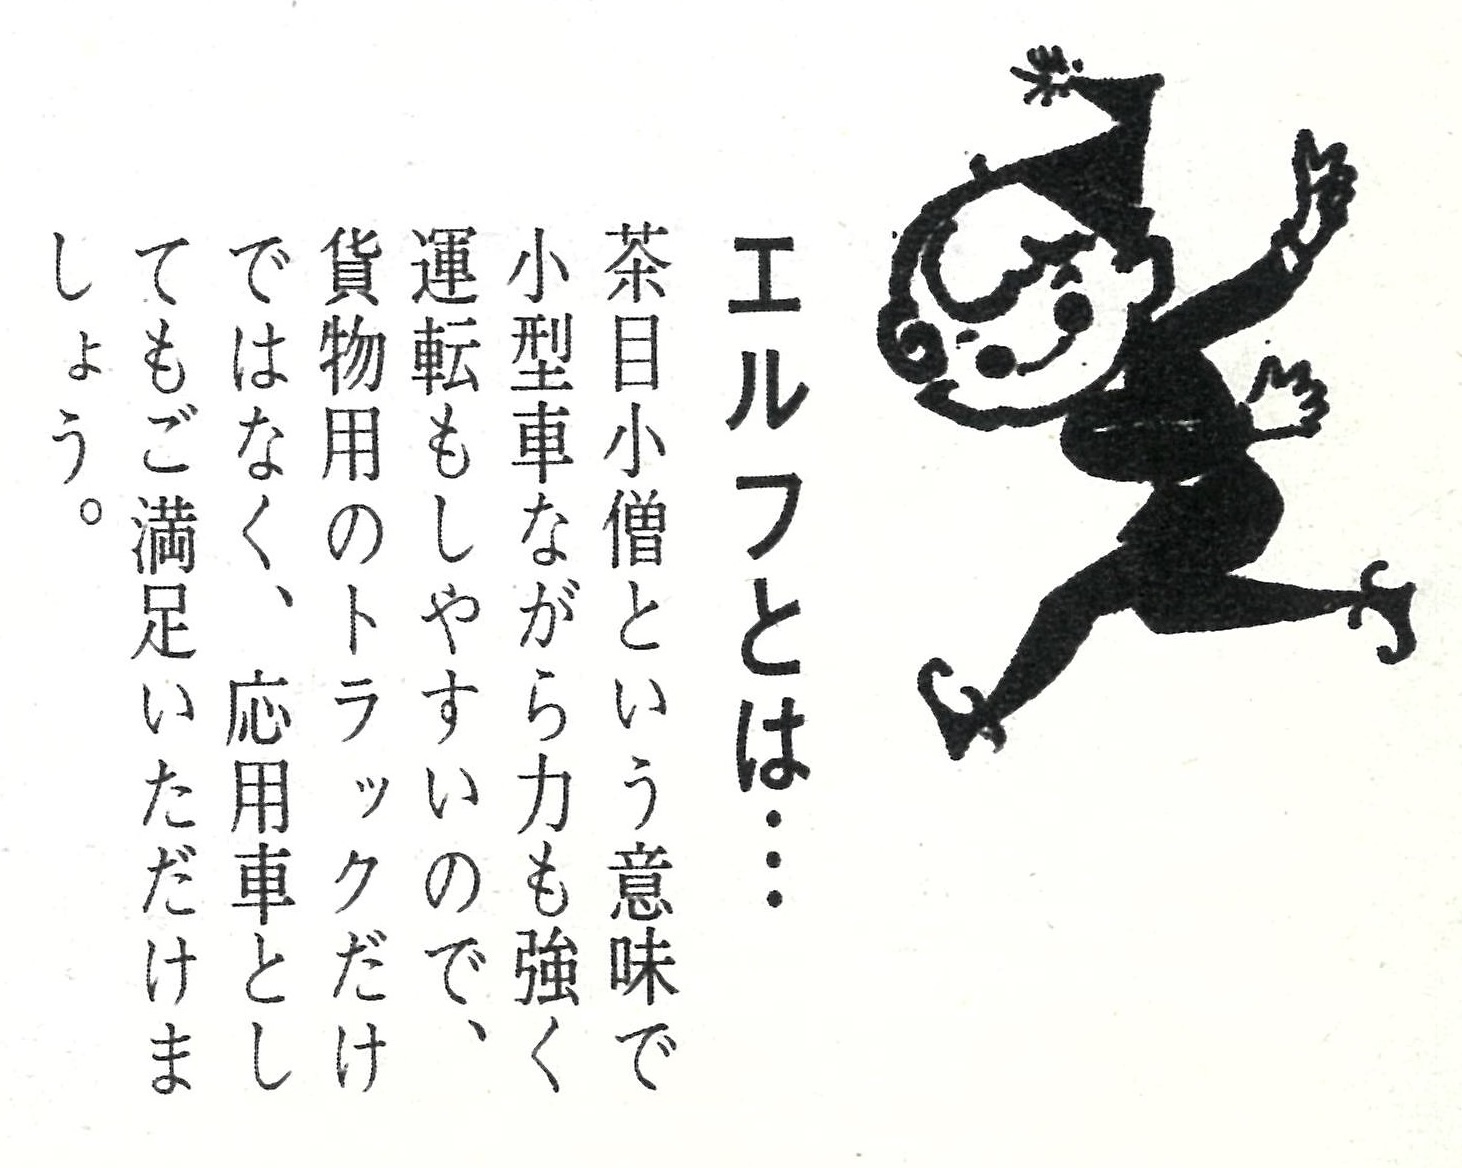 エルフとは…
茶目小僧という意味で
小型車ながら力も強く
運転もしやすいので、
貨物用のトラックだけ
ではなく、応用車とし
てもご満足いただけま
しょう。